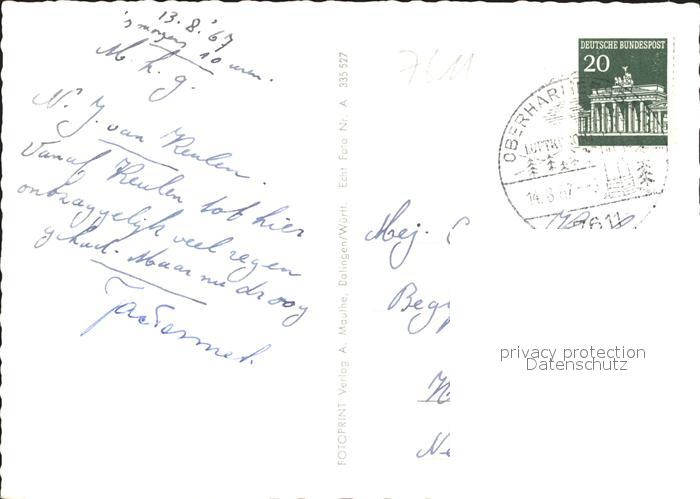 13.8.'67
's morgens 10 uren.
M. h. g.
N. J. van Keulen.
Vanaf Keulen tot hier
onbzaggelijk veel regen
gehad. Maar nu droog
FOTOPRINT Verlag A. Mauthe, Dotingen/Württ. Echt Foto Nr. A 335 527
7611
DEUTSCHE BUNDESPOST
20
OBERHAR
LUFTKU
14.8.67
7611
Mej.
Beg
N
Ne
privacy protection
Datenschutz